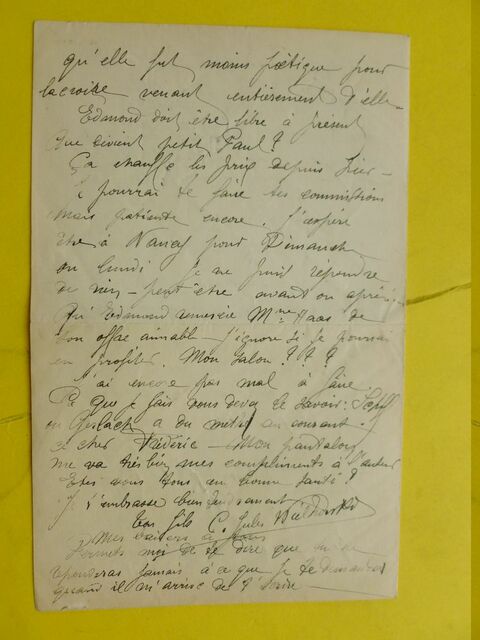 qu'elle fut moins poëtique pour
la croire venant entièrement d'elle
Edmond doit être libre à présent
Que devient petit Paul?
Ça chauffe les prix depuis hier —
Je pourrai te faire tes commissions
mais patiente encore. J'espère
être à Nancy pour Dimanche
ou lundi je ne puis répondre
de rien — peut-être avant ou après.
Qu'Edmond remercie Mme Haas de
son offre aimable — j'ignore si je pourrai
en profiter. Mon salon ? ? ?
J'ai encore pas mal à faire.
Ce que je fais vous devez le savoir:
ou a du mettre au courant
ce cher Frédéric — Mon pantalon
me va très bien, mes compliments à l'auteur
Etes vous tous en bonne santé?
Je t'embrasse bien tendrement
ton fils C. Jules
Mes baisers à tous
Permets moi de te dire que tu ne
répondras jamais à ce que je te demande
quand il m'arrive de t'écrire